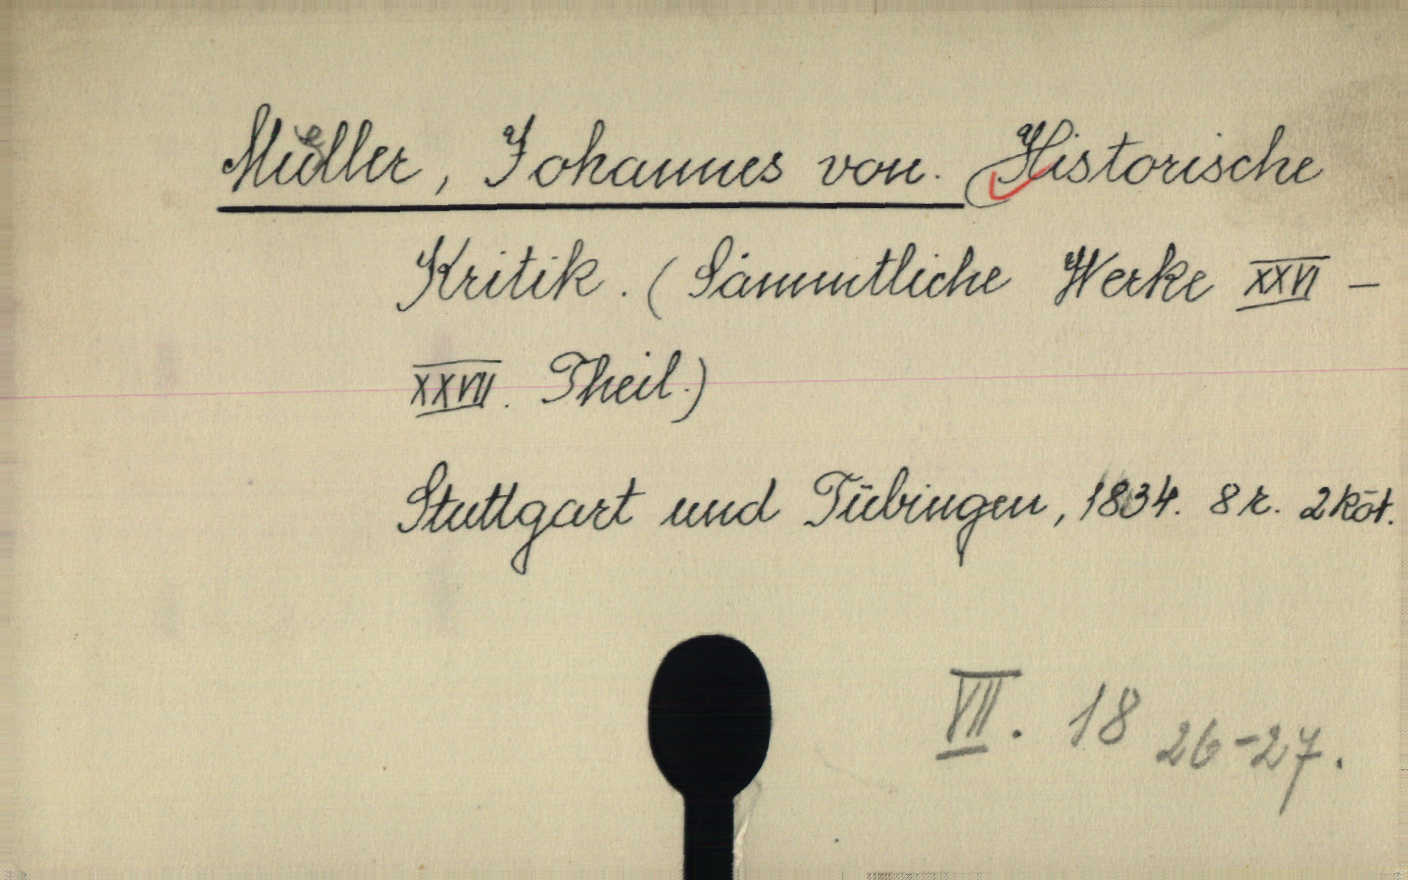 Müller, Johannes von. Historische
Kritik. (Sämmtliche Werke XXVI –
XXVII. Theil.)
Stuttgart und Tübingen, 1834. 8r. 2 köt.
VII. 18 26-27.